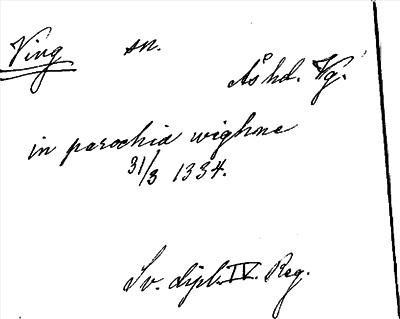 Ving sn.
Ås hd. Vg.
in parochia wighne
31/3 1334.
Sv. dipl. IV. Reg.